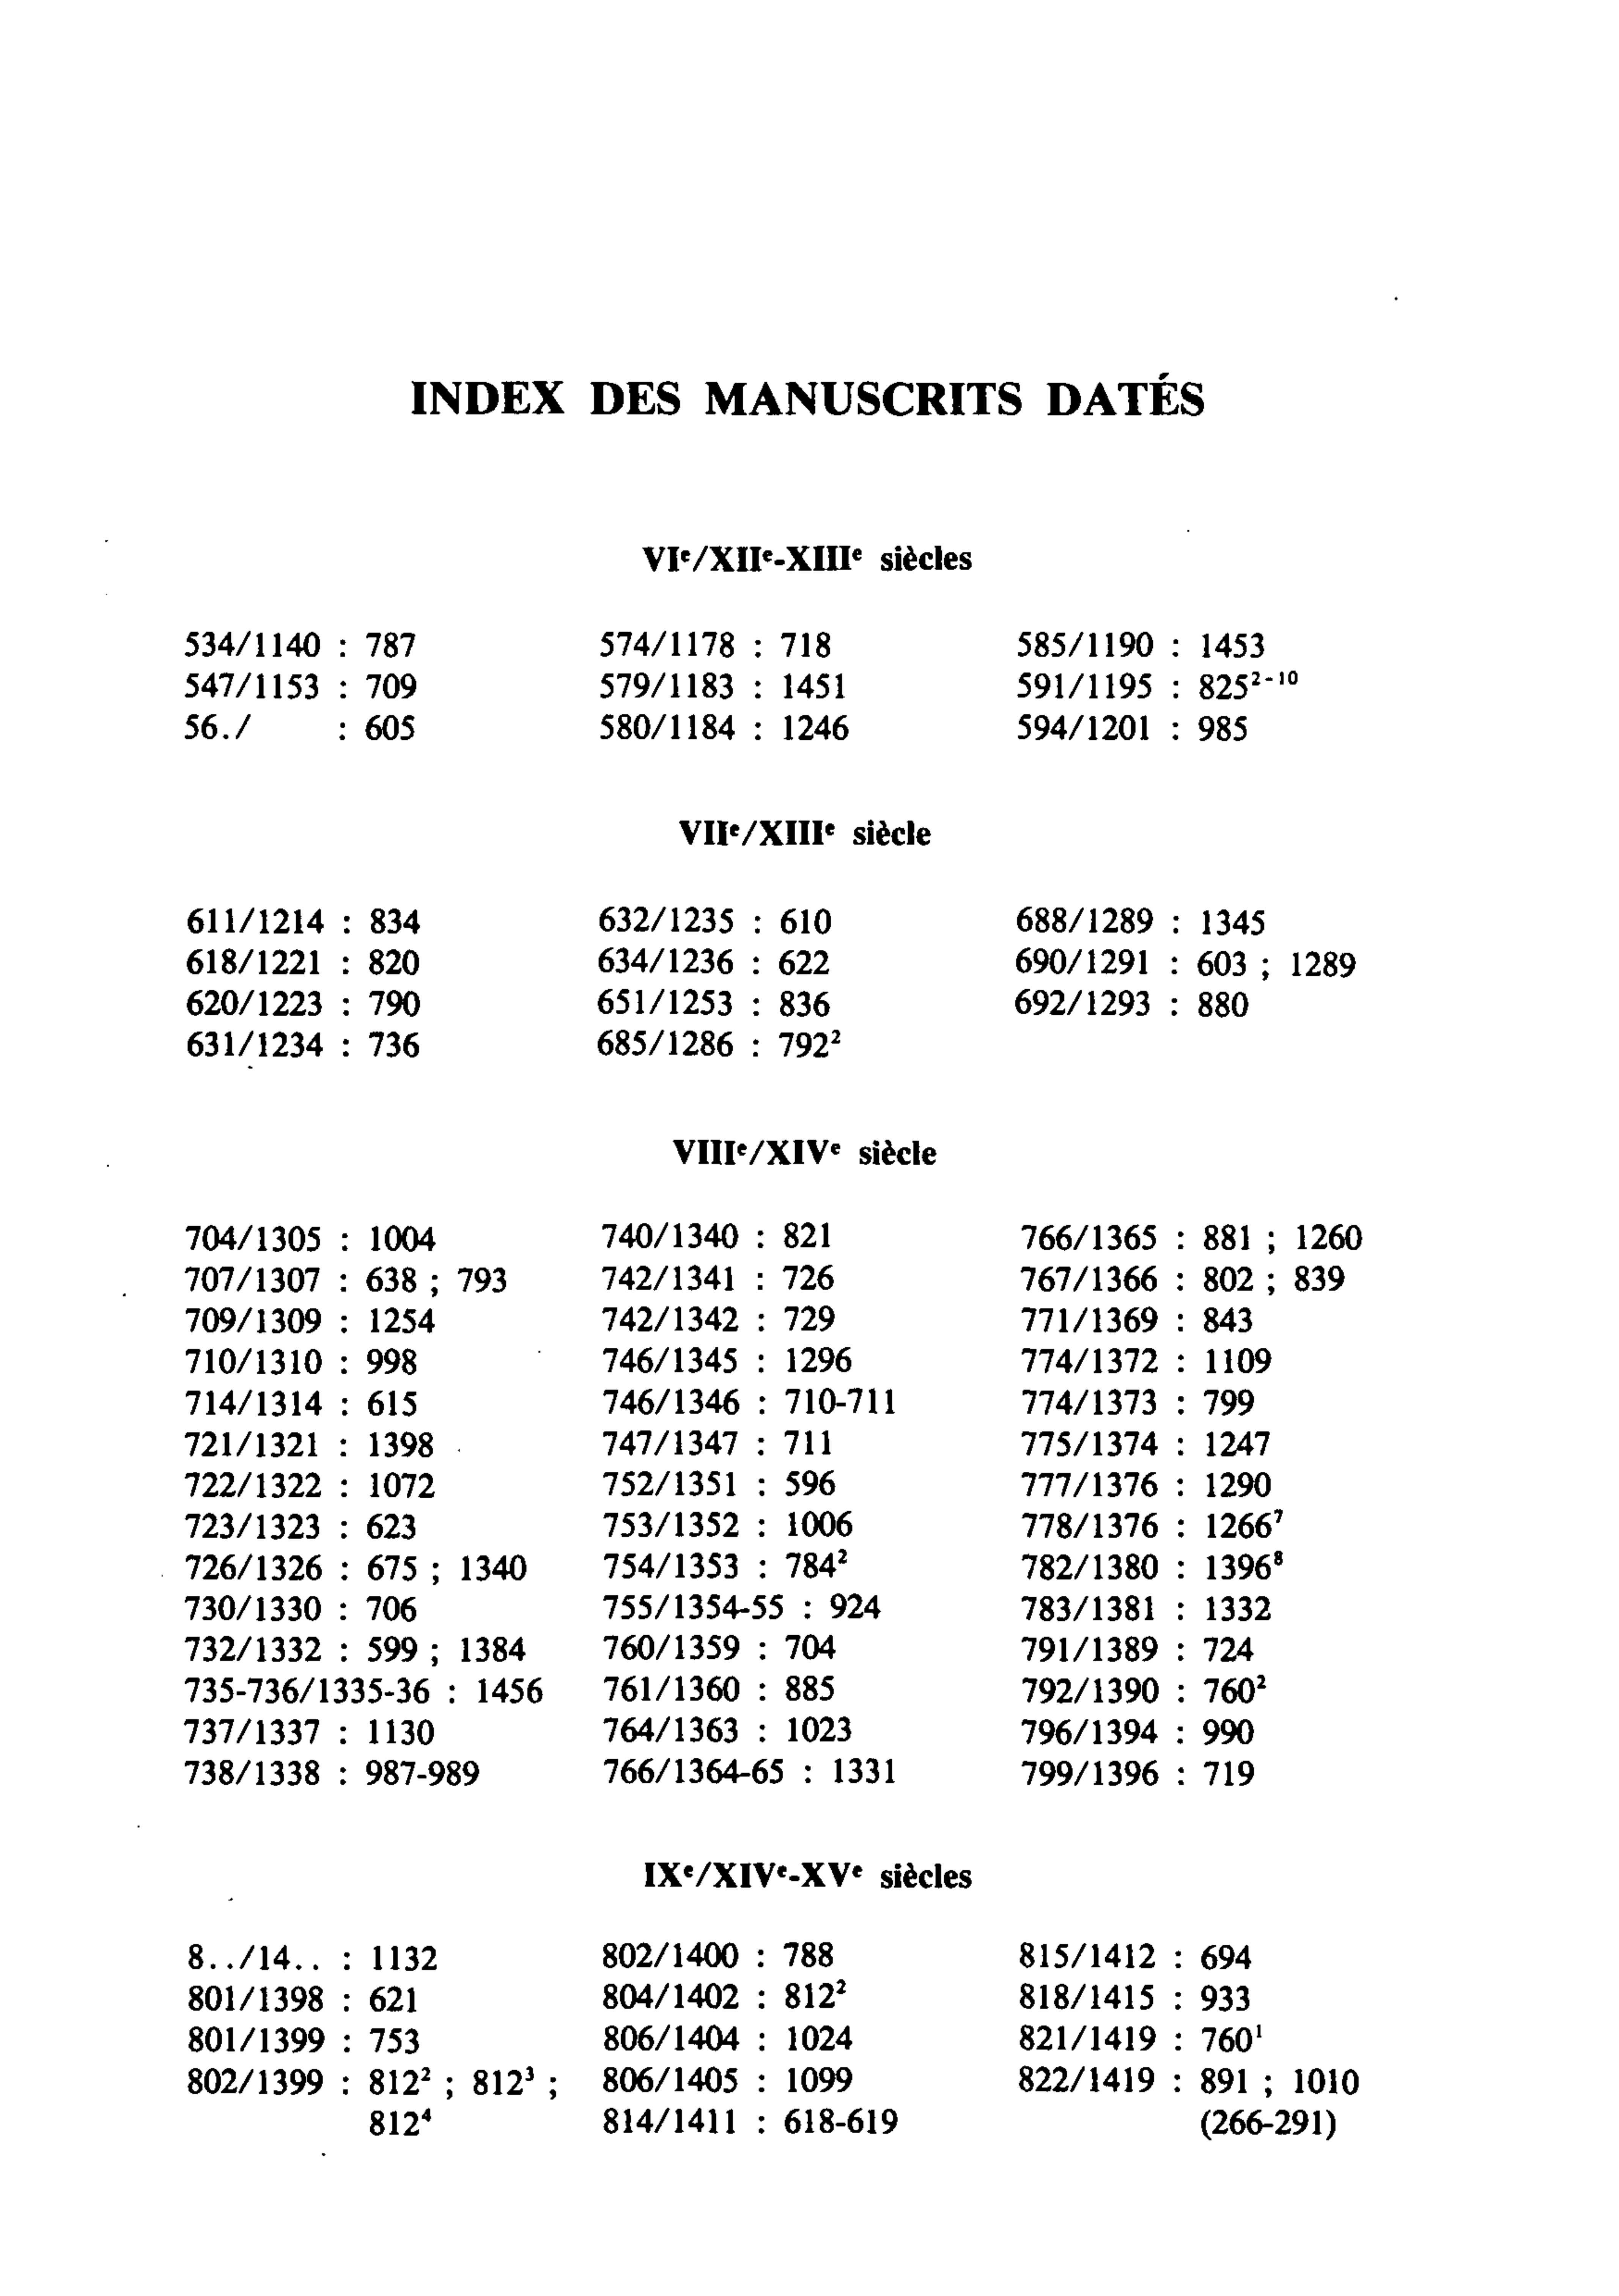 INDEX DES MANUSCRITS DATÉS
VIᵉ/XIIᵉ-XIIIᵉ siècles
534/1140 : 787
547/1153 : 709
56./ : 605
574/1178 : 718
579/1183 : 1451
580/1184 : 1246
585/1190 : 1453
591/1195 : 825²⁻¹⁰
594/1201 : 985
VIIᵉ/XIIIᵉ siècle
611/1214 : 834
618/1221 : 820
620/1223 : 790
631/1234 : 736
632/1235 : 610
634/1236 : 622
651/1253 : 836
685/1286 : 792²
688/1289 : 1345
690/1291 : 603 ; 1289
692/1293 : 880
VIIIᵉ/XIVᵉ siècle
704/1305 : 1004
707/1307 : 638 ; 793
709/1309 : 1254
710/1310 : 998
714/1314 : 615
721/1321 : 1398
722/1322 : 1072
723/1323 : 623
726/1326 : 675 ; 1340
730/1330 : 706
732/1332 : 599 ; 1384
735-736/1335-36 : 1456
737/1337 : 1130
738/1338 : 987-989
740/1340 : 821
742/1341 : 726
742/1342 : 729
746/1345 : 1296
746/1346 : 710-711
747/1347 : 711
752/1351 : 596
753/1352 : 1006
754/1353 : 784²
755/1354-55 : 924
760/1359 : 704
761/1360 : 885
764/1363 : 1023
766/1364-65 : 1331
766/1365 : 881 ; 1260
767/1366 : 802 ; 839
771/1369 : 843
774/1372 : 1109
774/1373 : 799
775/1374 : 1247
777/1376 : 1290
778/1376 : 1266⁷
782/1380 : 1396⁸
783/1381 : 1332
791/1389 : 724
792/1390 : 760²
796/1394 : 990
799/1396 : 719
IXᵉ/XIVᵉ-XVᵉ siècles
8../14.. : 1132
801/1398 : 621
801/1399 : 753
802/1399 : 812² ; 812³ ;
812⁴
802/1400 : 788
804/1402 : 812²
806/1404 : 1024
806/1405 : 1099
814/1411 : 618-619
815/1412 : 694
818/1415 : 933
821/1419 : 760¹
822/1419 : 891 ; 1010
(266-291)